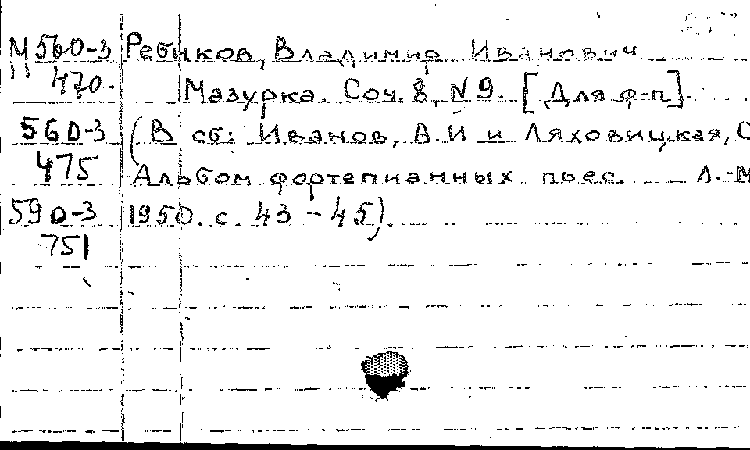 М 560-3 Ребиков, Владимир Иванович
470. Мазурка. Соч. 8, N 9. [Для ф-п].
560-3 (В сб: Иванов, В. И и Ляховицкая, С
475 Альбом фортепианных пьес. Л.-М
590-3 1950. с. 43 - 45).
751